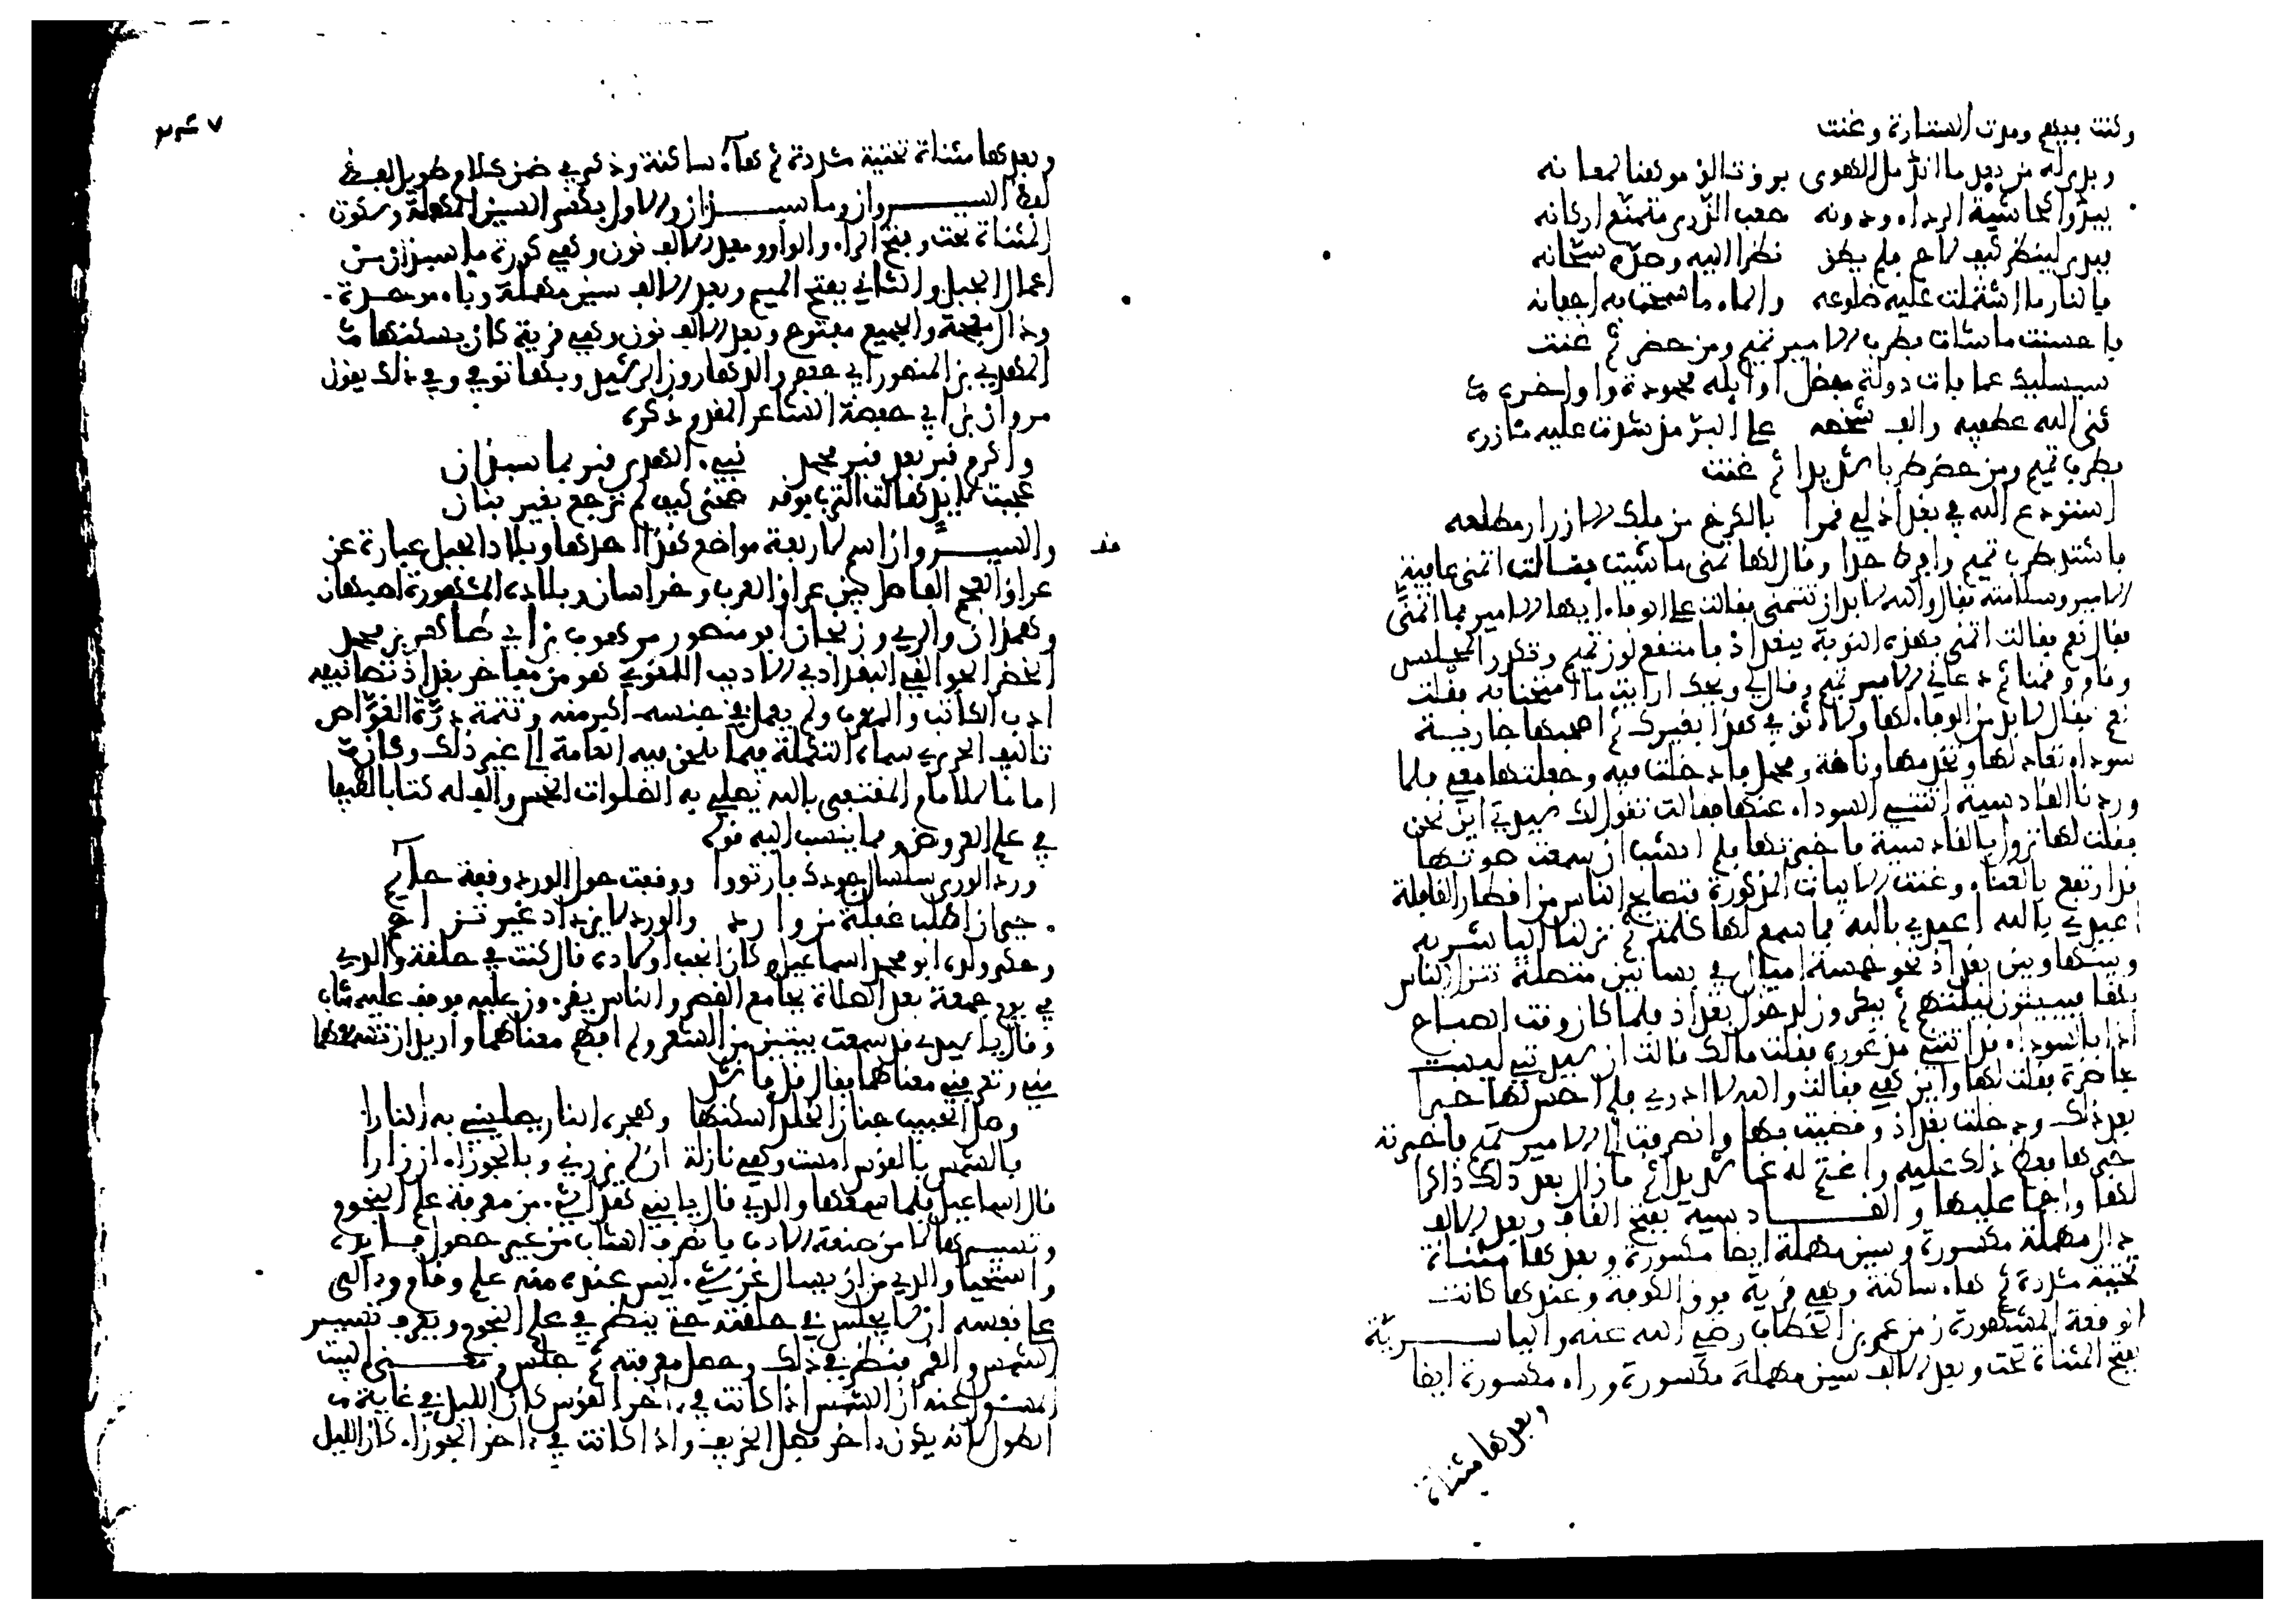 وكنت ببيع ومدت الستارة وغنت
وبدا له من بعد ما اندمل الهوى برق تالق موهنا لمعانه
يبدو كحاشية الرداء ودونه صعب الذرى متمنع اركانه
فبدا لينظر كيف لاح فلم يطق نظرا اليه وصده سجانه
فالنار ما اشتملت عليه ضلوعه والماء ما سمحت به اجفانه
فاحسنت ما شاءت فطرب الامير تميم ومن حضر ثم غنت
سيسليك عما فات دولة مفضل اوائله محمودة واواخره
ثنى الله عطفيه والف شخصه على البر مذ شدت عليه مئازره
فطرب تميم ومن حضر طربا شديدا ثم غنت
استودع الله في بغداد لي قمرا بالكرخ من فلك الازرار مطلعه
فاشتد طرب تميم وافرط جدا وقال لها تمنى ما شئت فقالت اتمنى عافية
الامير وسلامته فقال والله لا بد ان تتمنى فقالت على الوفاء ايها الامير بما اتمنى
فقال نعم فقالت اتمنى بهذه النوبة ببغداد فامتقع لون تميم وتكدر المجلس
وقام وقمنا ثم دعاني الامير تميم وقال لي ويحك ارايت ما امتحنا به فقلت
نعم فقال لا بد من الوفاء لها ولا اثق في هذا بغيرك ثم اصحبها جارية
سوداء تعادلها وتخدمها وناقة ومحمل فادخلت فيه وجعلتها معي فلما
وردنا القادسية اتتني السوداء عنها فقالت تقول لك سيدتي اين نحن
فقلت لها نزول بالقادسية فاخبرتها فلم انشب ان سمعت صوتها
قد ارتفع بالغناء وغنت الابيات المذكورة فتصايح الناس من اقطار القافلة
اعيدي بالله اعيدي بالله فما سمع لها كلمة ثم نزلنا الياسرية
وبينها وبين بغداد نحو خمسة اميال في بساتين متصلة تنزل الناس
بها فيبيتون ليلتهم ثم يبكرون لدخول بغداد فلما كان وقت الصباح
اذا بالسوداء قد اتتني مذعورة فقلت مالك قالت ان سيدتي ليست
بحاضرة فقلت لها واين هي فقالت والله لا ادري فلم احس لها خبرا
بعد ذلك ودخلت بغداد وقضيت بها وانصرفت الى الامير تميم فاخبرته
خبرها فعظم ذلك عليه واغتم له غما شديدا ثم ما زال بعد ذلك ذاكرا
لها واجما عليها والقادسية بفتح القاف وبعد الالف
دال مهملة مكسورة وسين مهملة ايضا مكسورة وبعدها مثناة
تحتية مشددة ثم هاء ساكنة وهي قرية فوق الكوفة وعندها كانت
الوقعة المشهورة زمن عمر بن الخطاب رضي الله عنه والياسرية
بفتح المثناة تحت وبعد الالف سين مهملة مكسورة وراء مكسورة ايضا
وبعدها مثناة
وبعدها مثناة تحتية مشددة ثم هاء ساكنة وذكر في ضمن كلام طويل
لفظ السيروان وماسبذان والاول بكسر السين المهملة وسكون
المثناة تحت وفتح الراء والواو وبعد الالف نون وهي كورة ماسبذان من
اعمال الجبل والثاني بفتح الميم وبعد الالف سين مهملة وباء موحدة
وذال معجمة والجميع مفتوح وبعد الالف نون وهي قرية كان يسكنها
المهدي بن المنصور ابي جعفر والد هارون الرشيد وبها توفي وفي ذلك يقول
مروان بن ابي حفصة الشاعر المقدم ذكره
واكرم قبر بعد قبر محمد نبي الهدى قبر بماسبذان
عجبت لايد هالت الترب فوقه ضحى كيف لم ترجع بغير بنان
والسيروان اسم لاربعة مواضع هذا احدها وبلاد الجبل عبارة عن
عراق العجم الفاصل بين عراق العرب وخراسان وبلاده المشهورة اصبهان
وهمذان والري وزنجان ابو منصور موهوب بن ابي طاهر بن محمد
الخضر الجواليقي البغدادي الاديب اللغوي هو من مفاخر بغداد تصانيفه
ادب الكاتب والمعرب ولم يعمل في جنسه اكبر منه وتتمة درة الغواص
تاليف الحريري سماه التكملة فيما يلحن فيه العامة الى غير ذلك وكان
اماما للامام المقتفي بالله يصلي به الصلوات الخمس والف له كتابا لطيفا
في علم العروض ومما ينسب اليه قوله
ورد الورى سلسال جودك فارتووا ووقفت حول الورد وقفة حائم
حيران اطلب غفلة من وارد والورد لا يزداد غير تزاحم
وحكى ولده ابو محمد اسماعيل وكان انجب اولاده قال كنت في حلقة والدي
في يوم جمعة بعد الصلاة بجامع القصر والناس يقرءون عليه فوقف عليه شاب
وقال يا سيدي قد سمعت بيتين من الشعر ولم افهم معناهما واريد ان تسمعهما
مني وتعرفني معناهما فقال قل فانشد
وصل الحبيب جنان الخلد اسكنها وهجره النار يصليني به النارا
فالشمس بالقوس امست وهي نازلة ان لم يزرني وبالجوزاء ان زارا
قال اسماعيل فلما سمعها والدي قال يا بني هذا شيء من معرفة علم النجوم
وتسييرها لا من صنعة الادب فانصرف الشاب من غير حصول فائدة
واستحيا والدي من ان يسال عن شيء ليس عنده منه علم وقام وءالى
على نفسه ان لا يجلس في حلقته حتى ينظر في علم النجوم ويعرف تسيير
الشمس والقمر فنظر في ذلك وحصل معرفته ثم جلس ومعنى البيت
المسئول عنه ان الشمس اذا كانت في ءاخر القوس كان الليل في غاية
الطول لانه يكون ءاخر فصل الخريف واذا كانت في ءاخر الجوزاء كان الليل